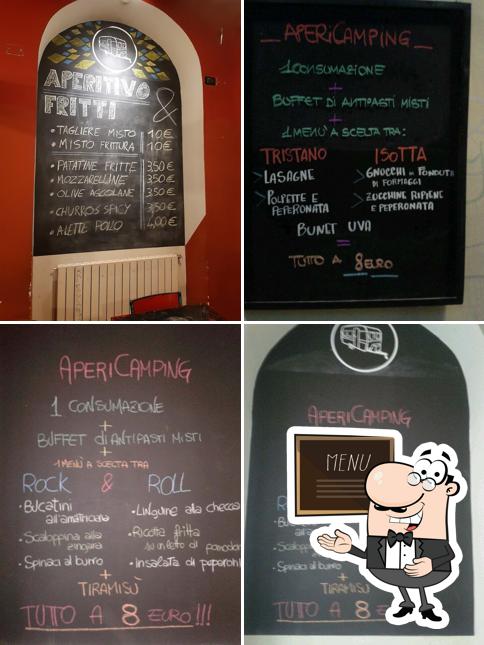 APERITIVO
FRITTI &
• TAGLIERE MISTO 10€
• MISTO FRITTURA 10€
• PATATINE FRITTE 3,50€
• MOZZARELLINE 3,50€
• OLIVE ASCOLANE 3,50€
• CHURROS SPICY 3,50€
• ALETTE POLLO 4,00€
_ APERICAMPING _
1 CONSUMAZIONE
+
BUFFET DI ANTIPASTI MISTI
+
1 MENÙ A SCELTA TRA:
TRISTANO ISOTTA
> LASAGNE
> POLPETTE E PEPERONATA
> GNOCCHI IN FONDUTA
DI FORMAGGI
> ZUCCHINE RIPIENE
E PEPERONATA
BUNET UVA
=
TUTTO A 8 EURO
APERICAMPING
1 CONSUMAZIONE
+
BUFFET di ANTIPASTI MISTI
+
1 MENÙ A SCELTA TRA
ROCK & ROLL
• Bucatini
all'amatriciana
• Scaloppina alla
zingara
• Spinaci al burro
• Linguine alla checca
• Ricotta fritta
su letto di pomodor
• Insalata di peperoni
+
TIRAMISÙ
TUTTO A 8 EURO!!!
APERICAMPING
MENU
• Spinaci al burro
+
TIRAMISÙ
TUTTO A 8